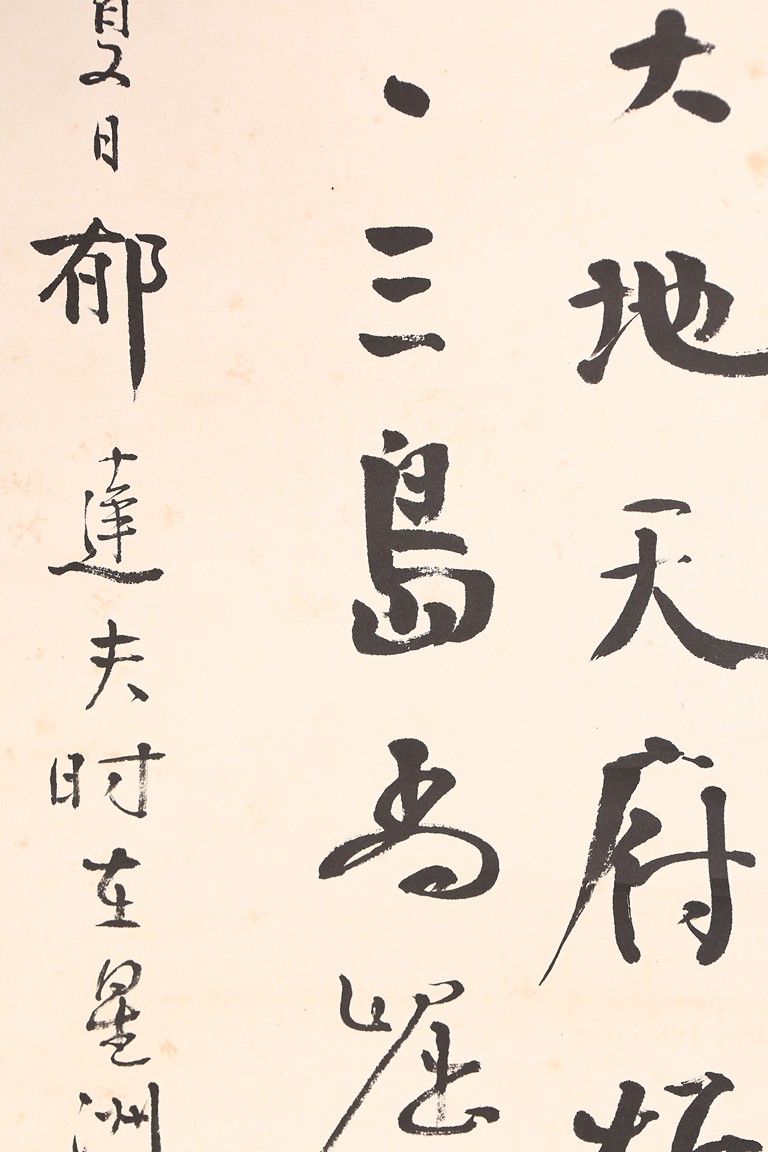 大地天府
、三島為崛
夏日郁達夫时在星洲